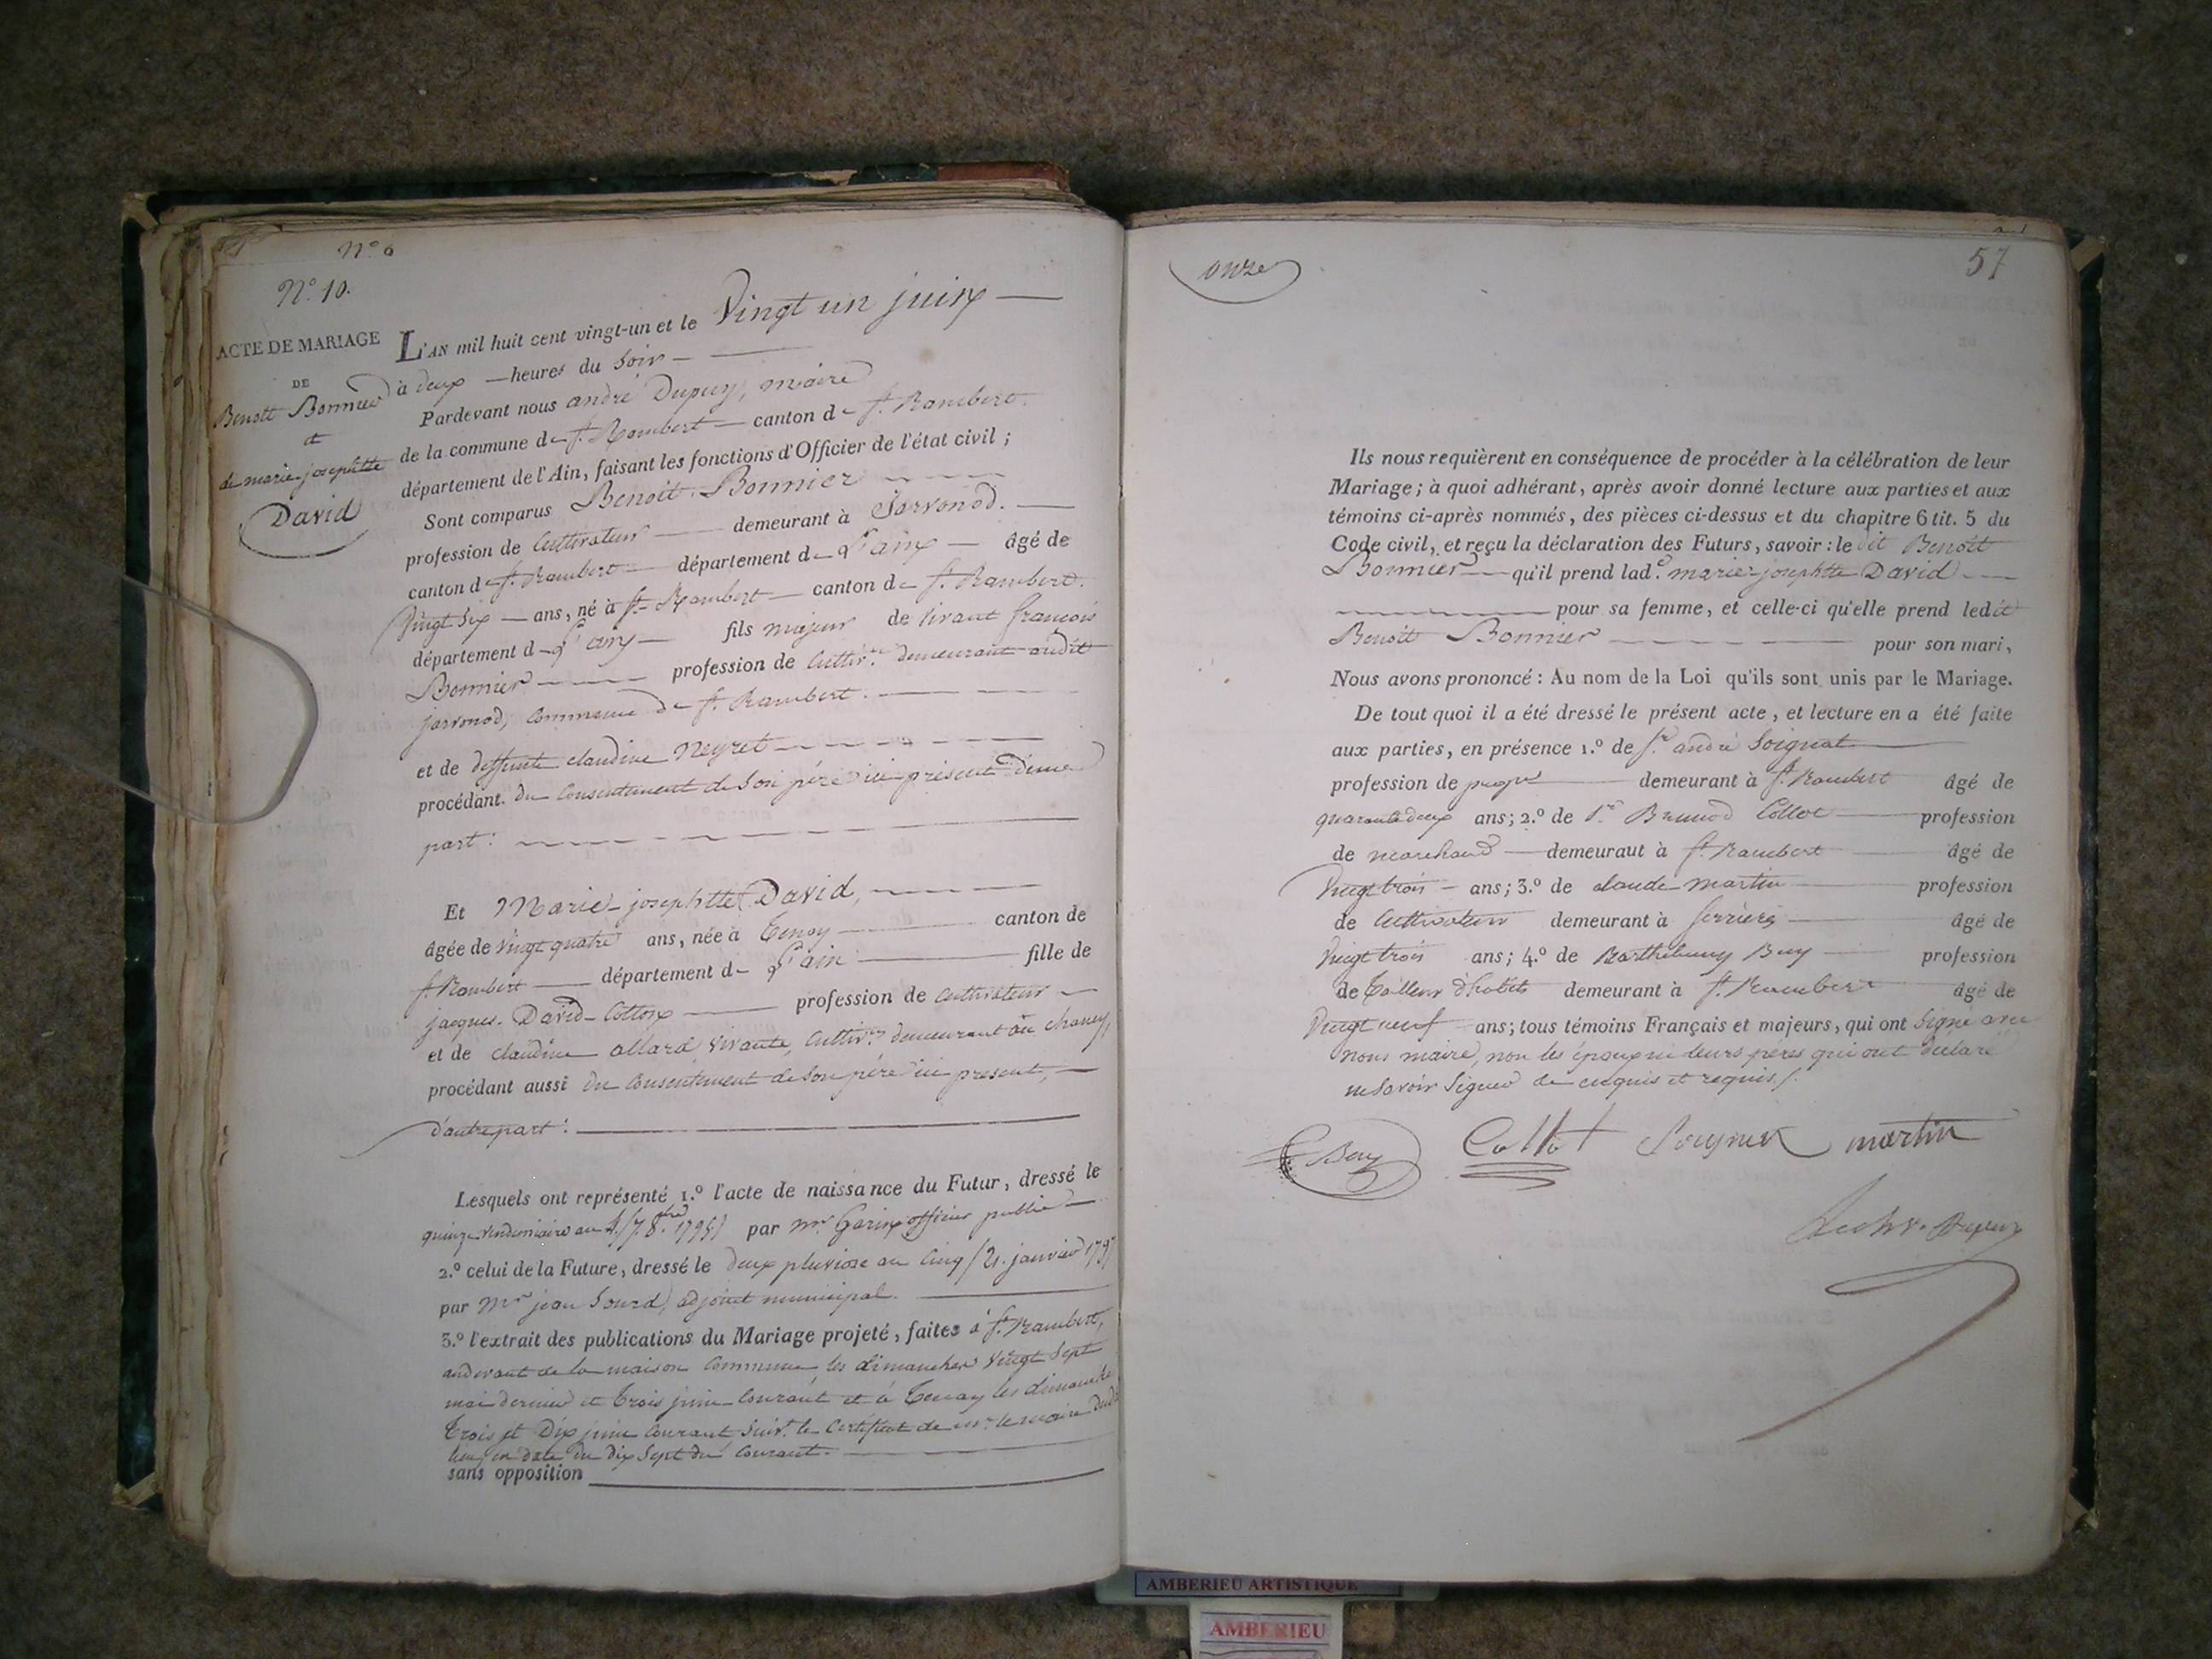 N° 6
N° 10.
ACTE DE MARIAGE
DE
Benoit Bonnier
et
de marie josephtte
David
L'AN mil huit cent vingt-un et le Vingt un juin
à deux heures du soir
Pardevant nous andré Dupuy, maire
de la commune de St. Rambert canton de St. Rambert.
département de l'Ain, faisant les fonctions d'Officier de l'état civil ;
Sont comparus Benoit Bonnier
profession de Cultivateur demeurant à Javornod.
canton de St. Rambert département de L'ain âgé de
Vingt Six ans, né à St. Rambert canton de St. Rambert.
département de L'ain fils majeur de vivant francois
Bonnier profession de Cultivr. demeurant audit
javornod, commune de St. Rambert.
et de deffunte claudine Neyret
procédant du Consentement de Son père ici présent d'une
part :
Et Marie josephtte David,
âgée de Vingt quatre ans, née à Tenay canton de
St. Rambert département de L'ain fille de
jacques David-Cotton profession de cultivateur
et de claudine allard vivante, cultivrs. demeurant au chaney,
procédant aussi du Consentement de Son père ici present,
d'autre part :
Lesquels ont représenté 1.° l'acte de naissance du Futur, dressé le
quinze vendémiaire an 4. (7. 8bre. 1795) par mr. Garin officier public
2.° celui de la Future, dressé le deux pluviose an Cinq (21. janvier 1797
par Mr jean Sourd, adjoint municipal.
3.° l'extrait des publications du Mariage projeté, faites à St. Rambert,
audevant de la maison Commune les dimanches Vingt Sept
mai dernier et trois juin Courant et à Tenay les dimanche
trois et Dix juin Courant, Suivt. le Certificat de mr. le maire dudit
lieu, en date du dix Sept du Courant.
sans opposition
onze
57
Ils nous requièrent en conséquence de procéder à la célébration de leur
Mariage ; à quoi adhérant, après avoir donné lecture aux parties et aux
témoins ci-après nommés, des pièces ci-dessus et du chapitre 6 tit. 5 du
Code civil, et reçu la déclaration des Futurs, savoir : le dit Benoit
Bonnier qu'il prend lade. marie josephtte David
pour sa femme, et celle-ci qu'elle prend ledit
Benoit Bonnier pour son mari,
Nous avons prononcé : Au nom de la Loi qu'ils sont unis par le Mariage.
De tout quoi il a été dressé le présent acte, et lecture en a été faite
aux parties, en présence 1.° de Sr. andré Soignat
profession de propre demeurant à St. Rambert âgé de
quarante deux ans ; 2.° de Sr. Brunod Collot profession
de marchand demeuraut à St. Rambert âgé de
Vingt trois ans ; 3.° de claude martin profession
de Cultivateur demeurant à Serrières âgé de
Vingt trois ans ; 4.° de Barthélemy Buy profession
de Tailleur d'habits demeurant à St. Rambert âgé de
Vingt neuf ans ; tous témoins Français et majeurs, qui ont Signé avec
nous maire, non les époux ni leurs pères qui ont déclaré
ne Savoir Signer de enquis et requis.
Buy Collot martin
Dupuy
AMBERIEU ARTISTIQUE
AMBERIEU